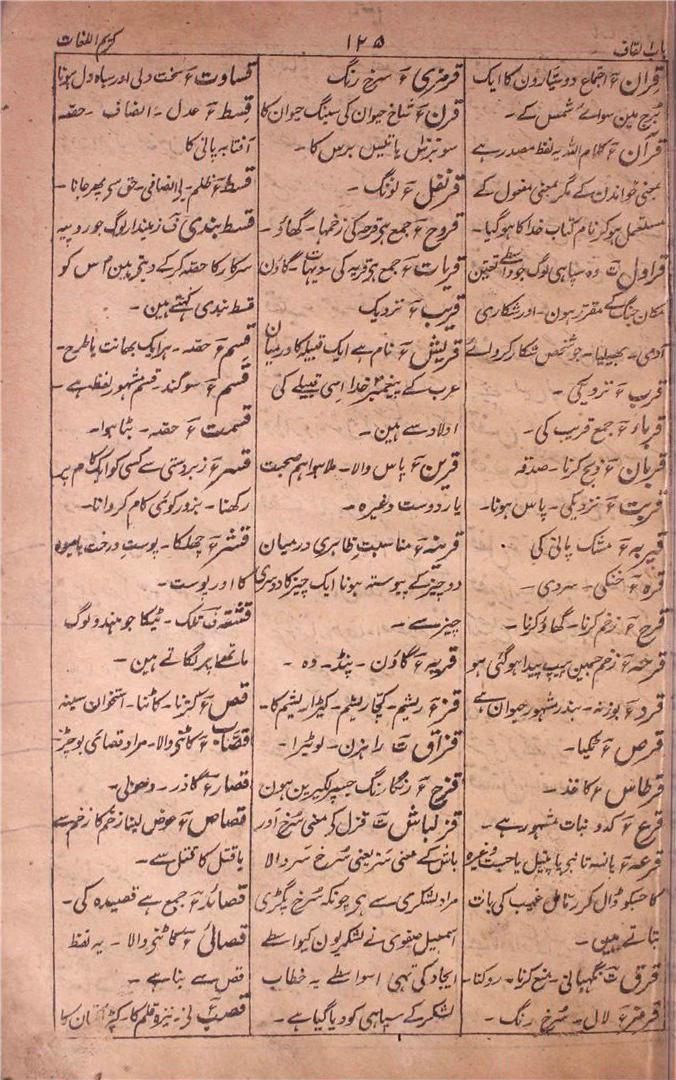 باب القاف
۱۲۵
کریم اللغات
قِران ؏ اجتماع دو ستارون کا ایک
برج مین سوائے شمس کے۔
قرآن ؏ کلام اللہ یہ لفظ مصدر ہے
بمعنی خواندن کے مگر بمعنی مفعول کے
مستعمل ہوکر نام کتاب خدا کا ہوگیا۔
قراول ت وہ سپاہی لوگ جو واسطے تعین
مکان جنگ کے مقرر ہون۔ اور شکاری
آدمی۔ بھیلیا۔ جو شخص شکار کروائے
قرب ؏ نزدیکی۔
قرباء ؏ جمع قریب کی۔
قربان ؏ ذبح کرنا۔ صدقہ
قربت ؏ نزدیکی۔ پاس ہونا۔
قربہ ؏ مشک پانی کی
قرہ ؏ خنکی۔ سردی۔
قرح ؏ زخم کرنا۔ گھاؤ کرنا۔
قرحہ ؏ زخم جسمین پیپ پیدا ہوگئی ہو
قرد ؏ بوزنہ۔ بندر مشہور حیوان ہے
قرص ؏ ٹکیا۔
قرطاس ؏ کاغذ۔
قرع ؏ کدو نبات مشہور ہے۔
قرعہ ؏ پانسہ تانبے یا پیتل یا جست وغیرہ
کا جسکو ڈال کر رمال غیب کی بات
بتاتے ہین۔
قرق ت نگہبانی۔ منع کرنا۔ روکنا۔
قرمز ؏ لال۔ سرخ رنگ۔
قرمزی ؏ سرخ رنگ
قرن ؏ شاخ حیوان کی سینگ حیوان کا
سو یا تیس برس کا۔
قرنفل ؏ لونگ۔
قروح ؏ جمع ہے قرحہ کی زخمہا۔ گھاؤ۔
قریات ؏ جمع ہے قریہ کی دیہات۔ گاؤن
قریب ؏ نزدیک
قریش ؏ نام ہے ایک قبیلہ کا درمیان
عرب کے پیغمبر خدا اسی قبیلے کی
اولاد سے ہین۔
قرین ؏ پاس والا۔ ملا ہوا ہم صحبت
یار دوست وغیرہ۔
قرینہ ؏ مناسبت ظاہری درمیان
دو چیز کے پیوستہ ہونا ایک چیز کا دوسری
چیز سے۔
قریہ ؏ گاؤن۔ پنڈ۔ دہ۔
قز ؏ ریشم۔ کچا ریشم۔ کپڑا ریشم کا۔
قزاق ت راہزن۔ لوٹیرا۔
قزح ؏ رنگا رنگ جسپر لکیرین ہون
قزلباش ت قزل کے معنی سرخ اور
باش کے معنی سر یعنی سرخ سر والا
مراد لشکری سے ہے چونکہ سرخ پگڑی
اسمعیل صفوی نے لشکریون کیواسطے
ایجاد کی تھی اسواسطے یہ خطاب
لشکر کے سپاہی کو دیا گیا ہے۔
قساوت ؏ سخت دلی اور سیاہ دل ہونا
قسط ؏ عدل۔ انصاف۔ حصہ
آفتابہ پانی کا
قسط ؏ ظلم۔ بے انصافی۔ حق سے پھر جانا۔
قسط بندی ف زمیندار لوگ جو روپیہ
سرکار کا حصہ کرکے دیتے ہین اُس کو
قسط بندی کہتے ہین۔
قسم ؏ حصہ۔ ہر ایک بھانت یا طرح۔
قسم ؏ سوگند۔ قسم مشہور لفظ ہے۔
قسمت ؏ حصہ۔ بٹا ہوا۔
قسر ؏ زبردستی سے کسی کو ایک کام پر
رکھنا۔ بزور کوئی کام کروانا۔
قشر ؏ چھلکا۔ پوست درخت یا میوہ
کا اور پوست۔
قشقہ ف تلک۔ ٹیکا جو ہندو لوگ
ماتھے پر لگاتے ہین۔
قص ؏ کترنا۔ کاٹنا۔ استخوان سینہ
قصاب ؏ کاٹنے والا۔ مراد قصائی بوچڑ
قصار ؏ گاذر۔ دھوبی۔
قصاص ؏ عوض لینا زخم کا زخم سے
یا قتل کا قتل سے۔
قصائد ؏ جمع ہے قصیدہ کی۔
قصائی ؏ کاٹنے والا۔ یہ لفظ
قص سے بنا ہے۔
قصب ؏ نے۔ نیزہ قلم کا۔ کپڑا کتان کا